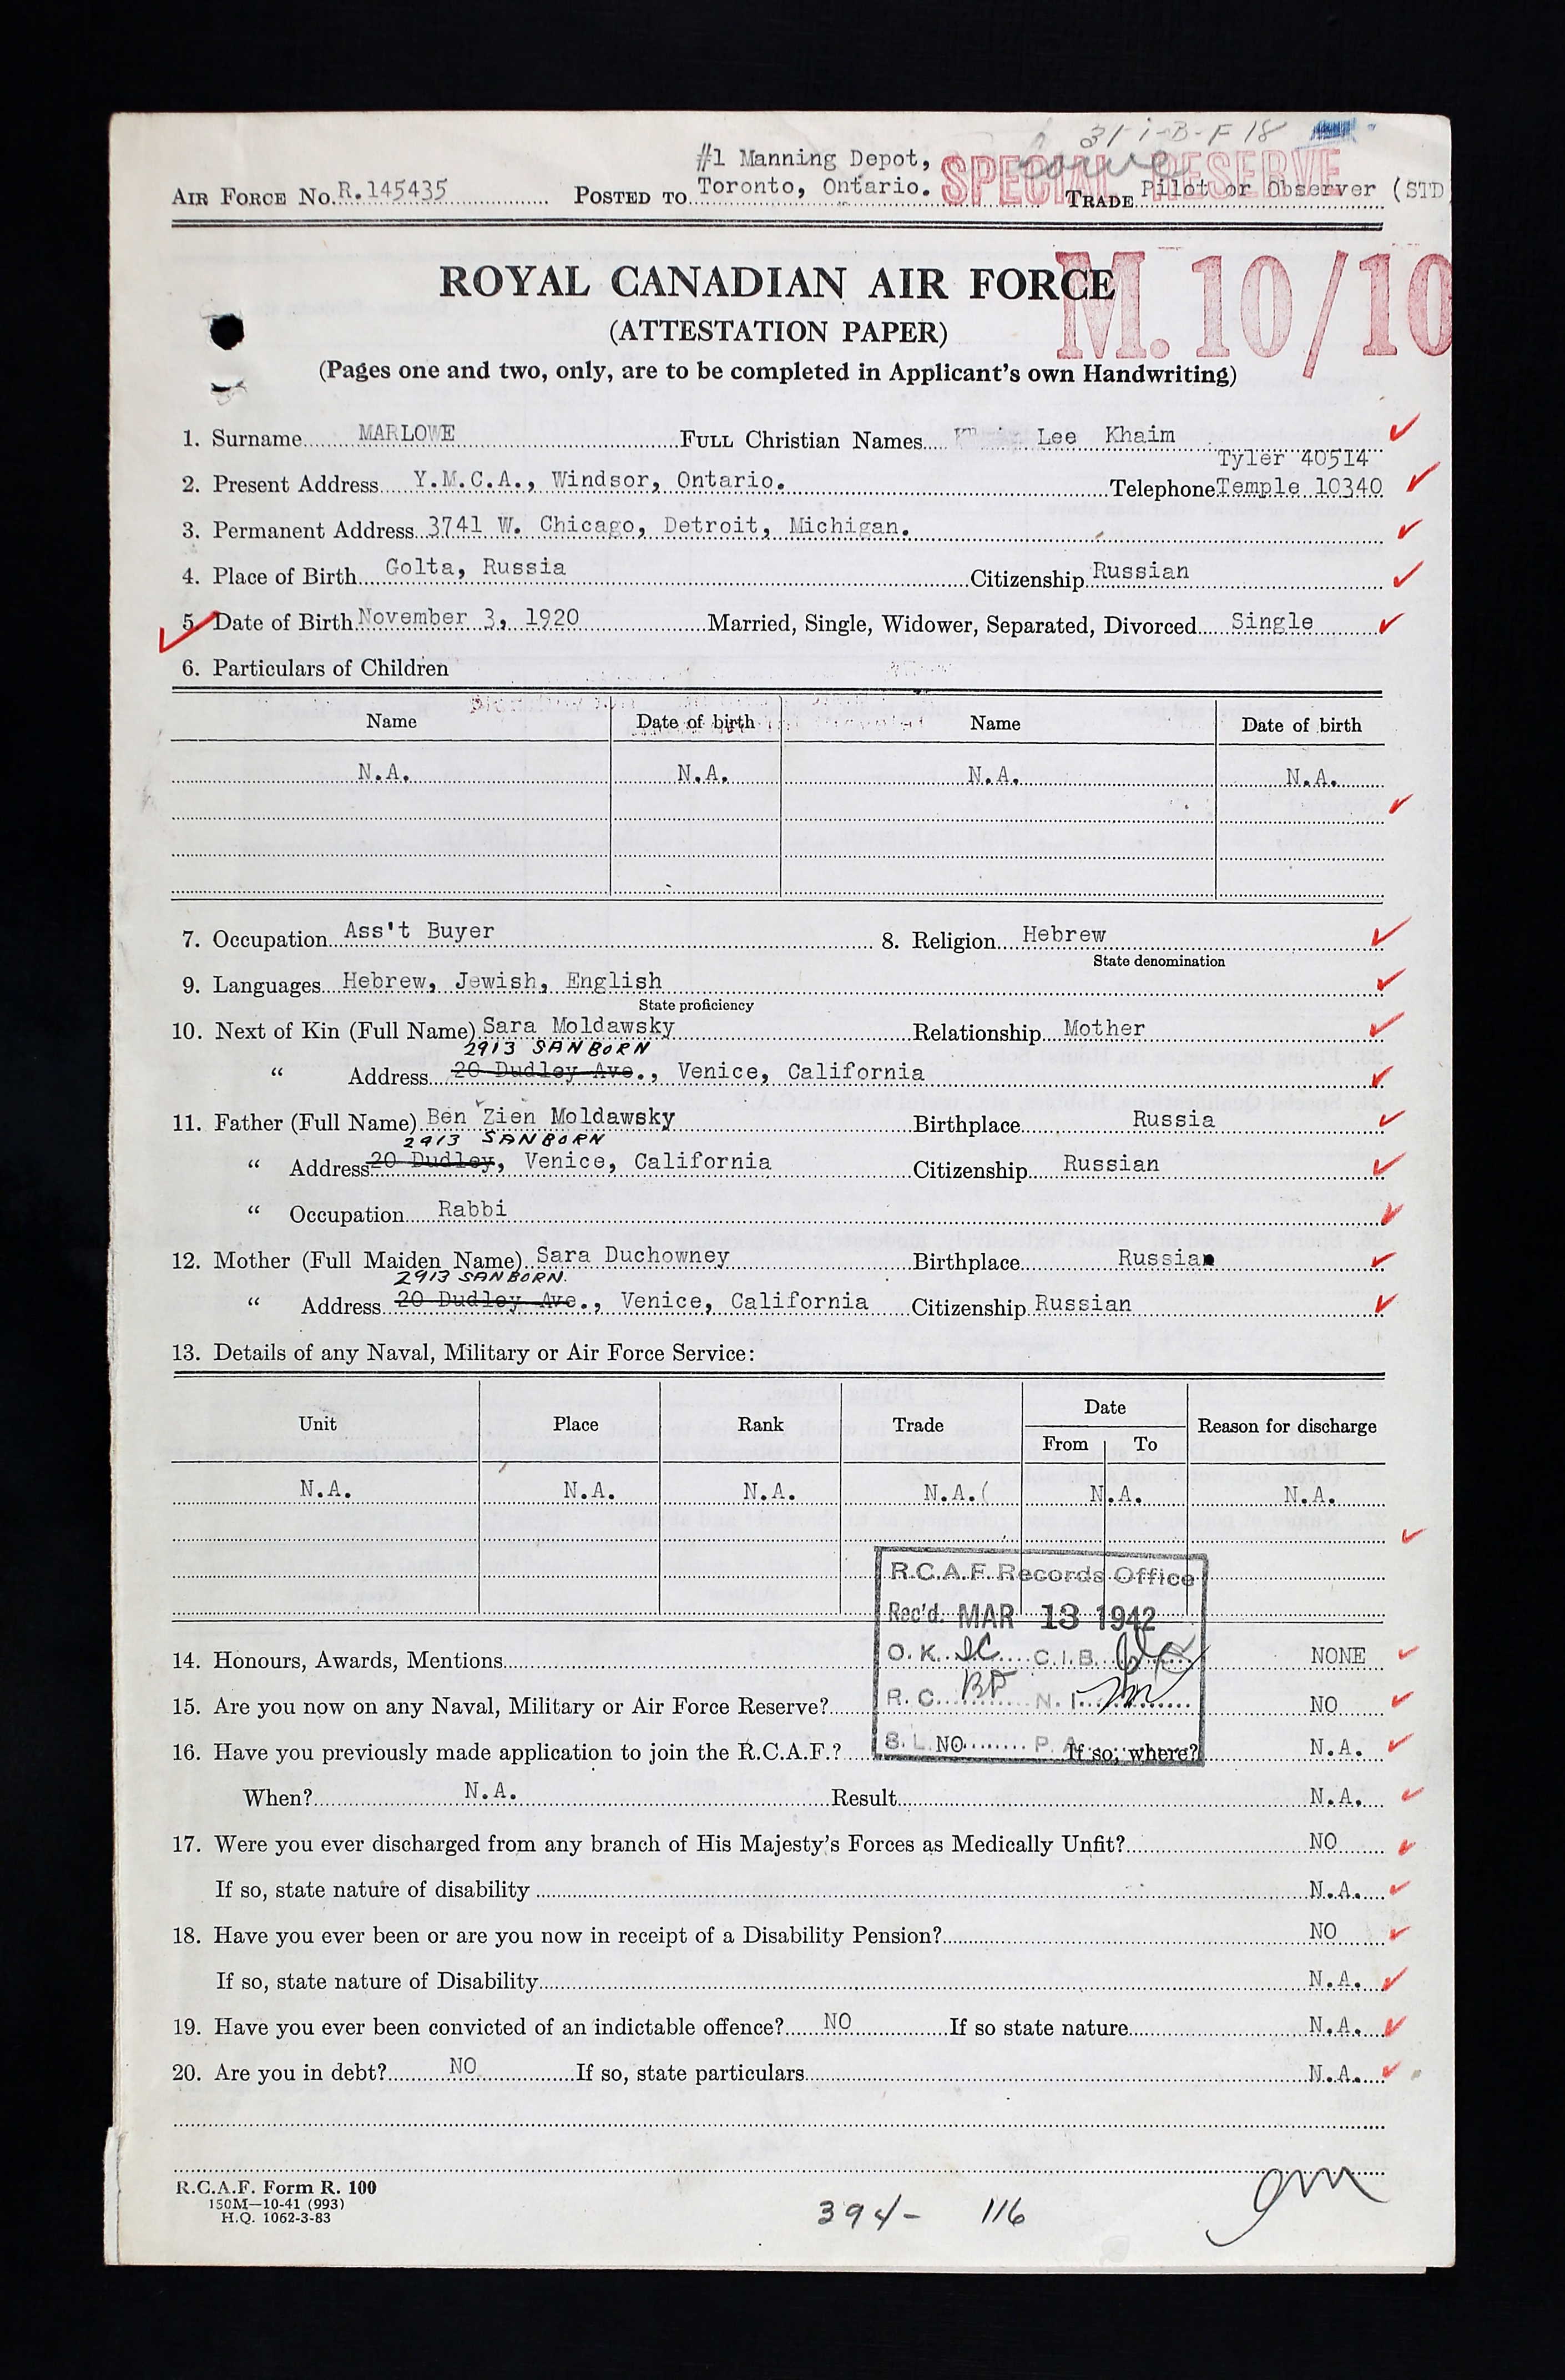 31-1-B-F 18
#1 Manning Depot,
SPECIAL RESERVE
AIR FORCE No. R.145435 POSTED TO Toronto, Ontario. TRADE Pilot or Observer (STD
M.10/10
ROYAL CANADIAN AIR FORCE
(ATTESTATION PAPER)
(Pages one and two, only, are to be completed in Applicant's own Handwriting)
1. Surname MARLOWE FULL Christian Names Lee Khaim
Tyler 40514
2. Present Address Y.M.C.A., Windsor, Ontario. Telephone Temple 10340
3. Permanent Address 3741 W. Chicago, Detroit, Michigan.
4. Place of Birth Golta, Russia Citizenship Russian
5. Date of Birth November 3, 1920 Married, Single, Widower, Separated, Divorced Single
6. Particulars of Children
Name Date of birth Name Date of birth
N.A. N.A. N.A. N.A.
7. Occupation Ass't Buyer 8. Religion Hebrew
State denomination
9. Languages Hebrew, Jewish, English
State proficiency
10. Next of Kin (Full Name) Sara Moldawsky Relationship Mother
2913 SANBORN
" Address 20 Dudley Ave., Venice, California
11. Father (Full Name) Ben Zien Moldawsky Birthplace Russia
2913 SANBORN
" Address 20 Dudley, Venice, California Citizenship Russian
" Occupation Rabbi
12. Mother (Full Maiden Name) Sara Duchowney Birthplace Russian
2913 SANBORN.
" Address 20 Dudley Ave., Venice, California Citizenship Russian
13. Details of any Naval, Military or Air Force Service:
Unit Place Rank Trade Date Reason for discharge
From To
N.A. N.A. N.A. N.A.( N.A. N.A.
R.C.A.F. Records Office
Rec'd. MAR 13 1942
O.K. C.I.B.
14. Honours, Awards, Mentions NONE
R.C. N.I.
15. Are you now on any Naval, Military or Air Force Reserve? NO
S.L. P.A.
16. Have you previously made application to join the R.C.A.F.? NO If so, where? N.A.
When? N.A. Result N.A.
17. Were you ever discharged from any branch of His Majesty's Forces as Medically Unfit? NO
If so, state nature of disability N.A.
18. Have you ever been or are you now in receipt of a Disability Pension? NO
If so, state nature of Disability N.A.
19. Have you ever been convicted of an indictable offence? NO If so state nature N.A.
20. Are you in debt? NO If so, state particulars N.A.
R.C.A.F. Form R. 100
150M—10-41 (993)
H.Q. 1062-3-83
394- 116